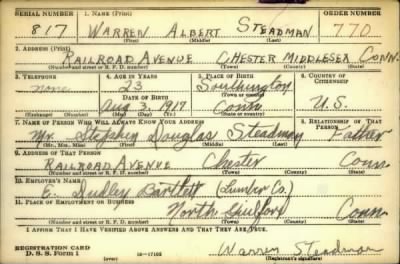 SERIAL NUMBER 1. NAME (Print) ORDER NUMBER
817 WARREN ALBERT STEADMAN 770
(First) (Middle) (Last)
2. ADDRESS (Print)
RAILROAD AVENUE CHESTER MIDDLESEX CONN.
(Number and street or R. F. D. number) (Town) (County) (State)
3. TELEPHONE 4. AGE IN YEARS 5. PLACE OF BIRTH 6. COUNTRY OF CITIZENSHIP
none 23 Southington
DATE OF BIRTH (Town or county)
Aug 3, 1917 Conn. U.S.
(Exchange) (Number) (Mo.) (Day) (Yr.) (State or country)
7. NAME OF PERSON WHO WILL ALWAYS KNOW YOUR ADDRESS 8. RELATIONSHIP OF THAT PERSON
Mr. Stephen Douglas Steadman Father
(Mr., Mrs., Miss) (First) (Middle) (Last)
9. ADDRESS OF THAT PERSON
RAILROAD AVENUE Chester Conn.
(Number and street or R. F. D. number) (Town) (County) (State)
10. EMPLOYER'S NAME
E. Dudley Bartlett (Lumber Co.)
11. PLACE OF EMPLOYMENT OR BUSINESS
North Guilford Conn.
(Number and street or R. F. D. number) (Town) (County) (State)
I AFFIRM THAT I HAVE VERIFIED ABOVE ANSWERS AND THAT THEY ARE TRUE.
REGISTRATION CARD
D. S. S. Form 1 (over) 16—17105 Warren Steadman
(Registrant's signature)